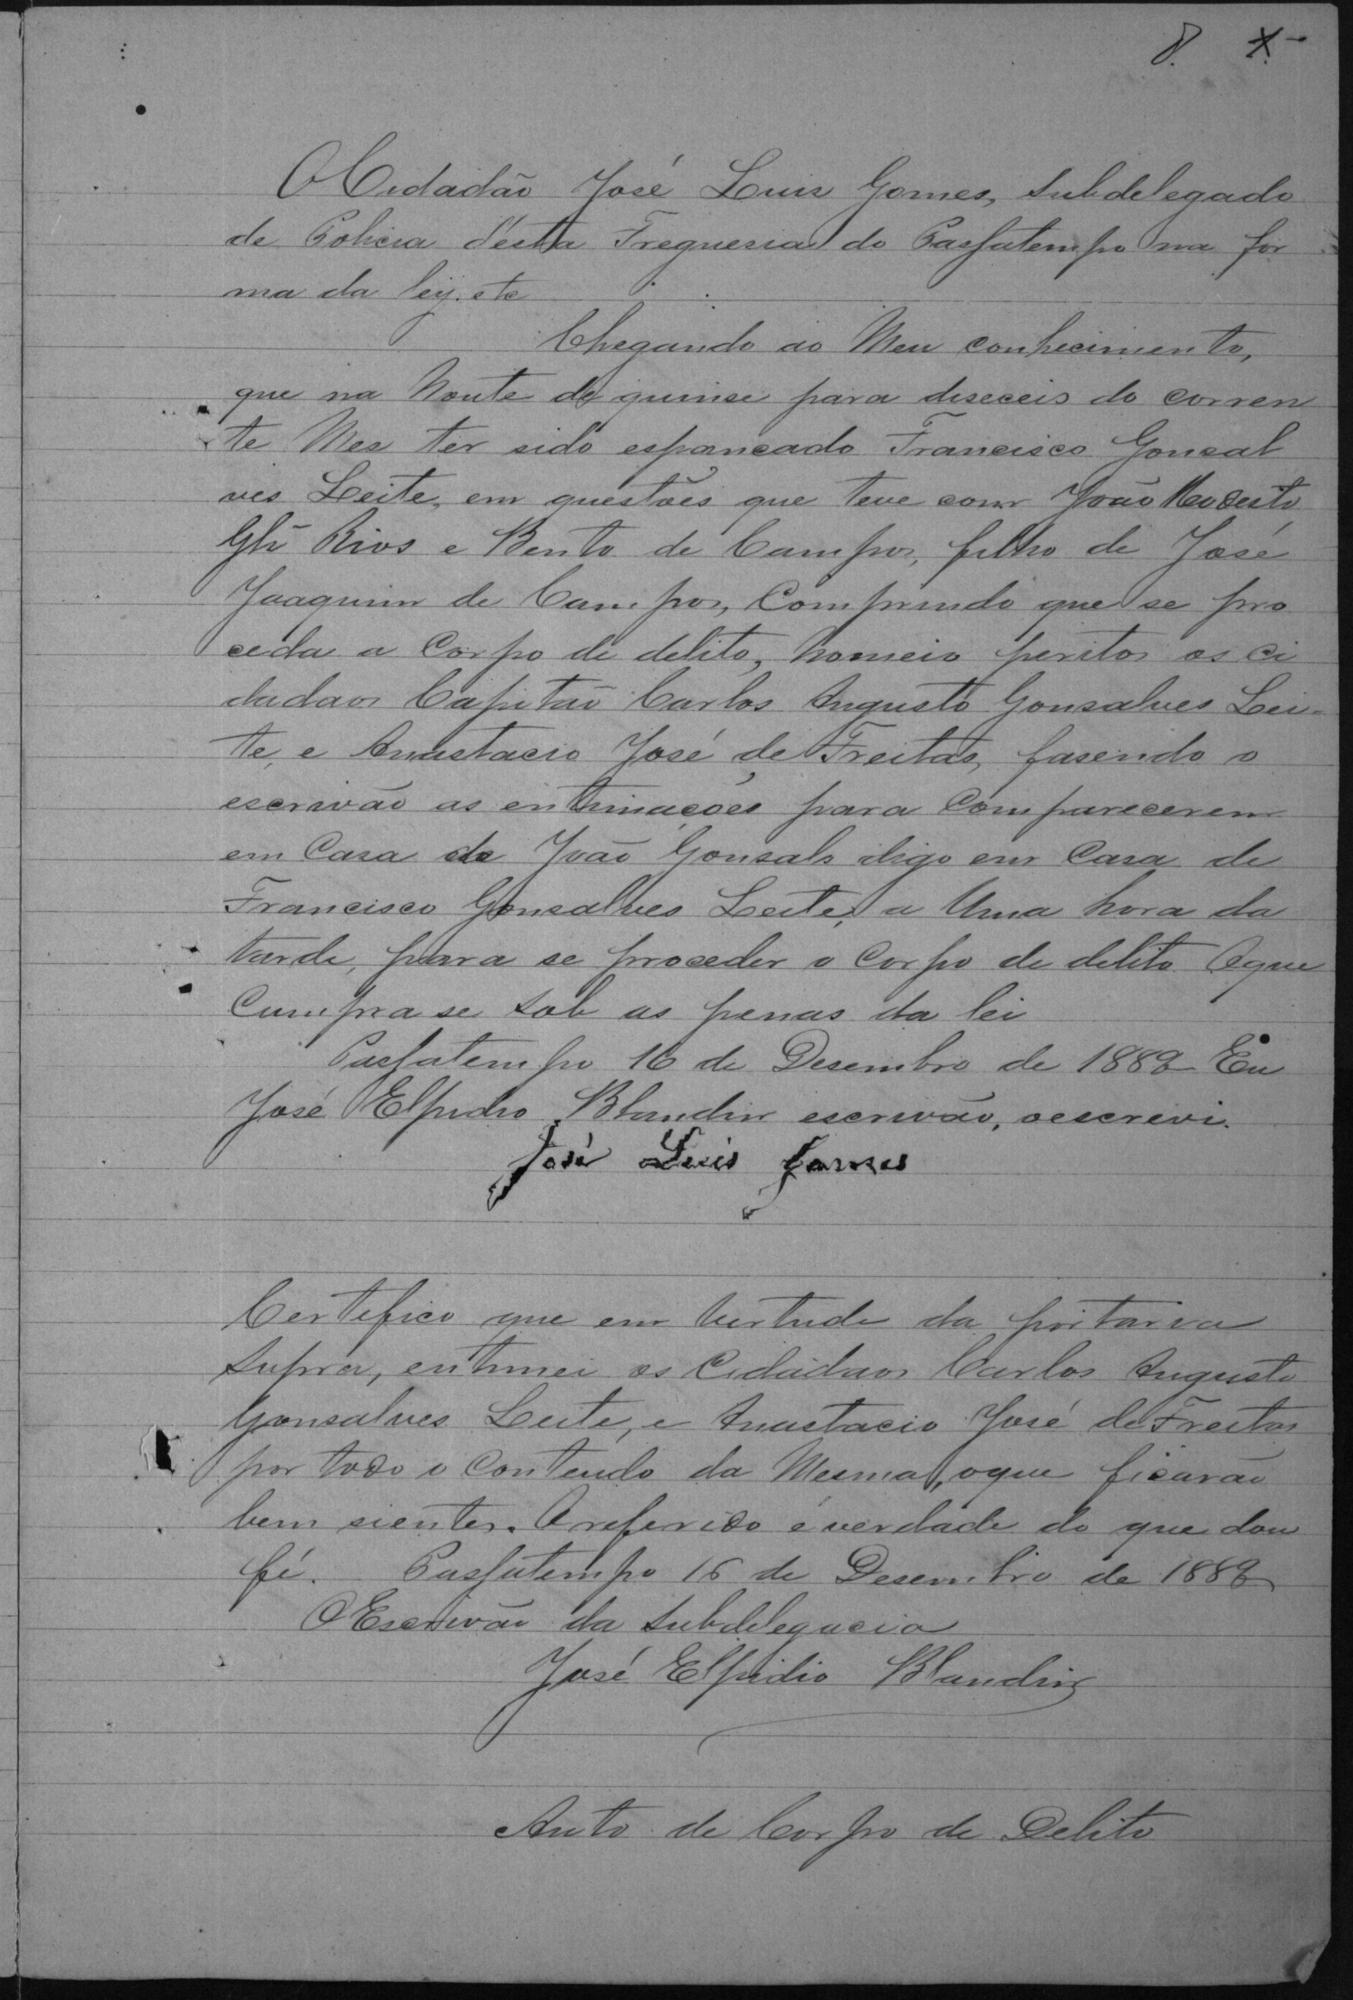 8.
O Cidadão José Luis Gomes, Subdelegado
de Policia d'esta Freguesia do Passatempo na for
ma da ley. etc
Chegando ao Meu conhecimento,
que na Noute de quinse para diseceis do corren
te Mes ter sido espancado Francisco Gonsal
ves Leite, em questões que teve com João Modesto
Glz Rios e Bento de Campos, filho de José
Joaquim de Campos, Comprindo que se pro
ceda a Corpo de delito, Nomeio peritos os ci
dadaos Capitão Carlos Augusto Gonsalves Lei-
te, e Anastacio José de Freitas, fasendo o
escrivão as entimações para Comparecerem
em Casa de João Gonsals digo em Casa de
Francisco Gonsalves Leite, a Uma hora da
tarde, para se proceder o Corpo de delito Oque
Cumpra se sob as penas da lei
Passatempo 16 de Desembro de 1889 Eu
José Elpidio Blandin escrivão, oescrevi.
José Luis Gomes
Certefico que em Vertude da portaria
Supra, entimei os Cidadaos Carlos Augusto
Gonsalves Leite, e Anastacio José de Freitas
por todo o Conteudo da Mesma, oque ficarão
bem sientes. O referido é verdade do que dou
fé. Passatempo 16 de Desembro de 1889
O Escrivão da Subdelegacia
José Elpidio Blandin
Auto de Corpo de Delito